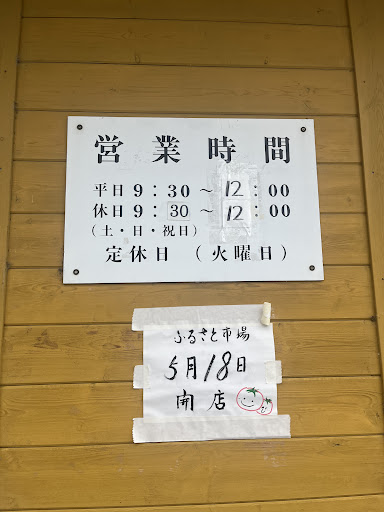 営業時間
平日9:30～12:00
休日9:30～12:00
(土・日・祝日)
定休日(火曜日)
ふるさと市場
5月18日
開店